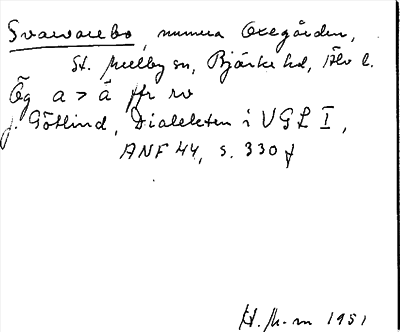 Svawarebo, numera Oxegården,
St. Mellby sn, Bjärke hd, Älv l.
Ög a > å ffr rv
J. Götlind, Dialekten i VGL I,
ANF 44, s. 330 f
H. M-m 1951